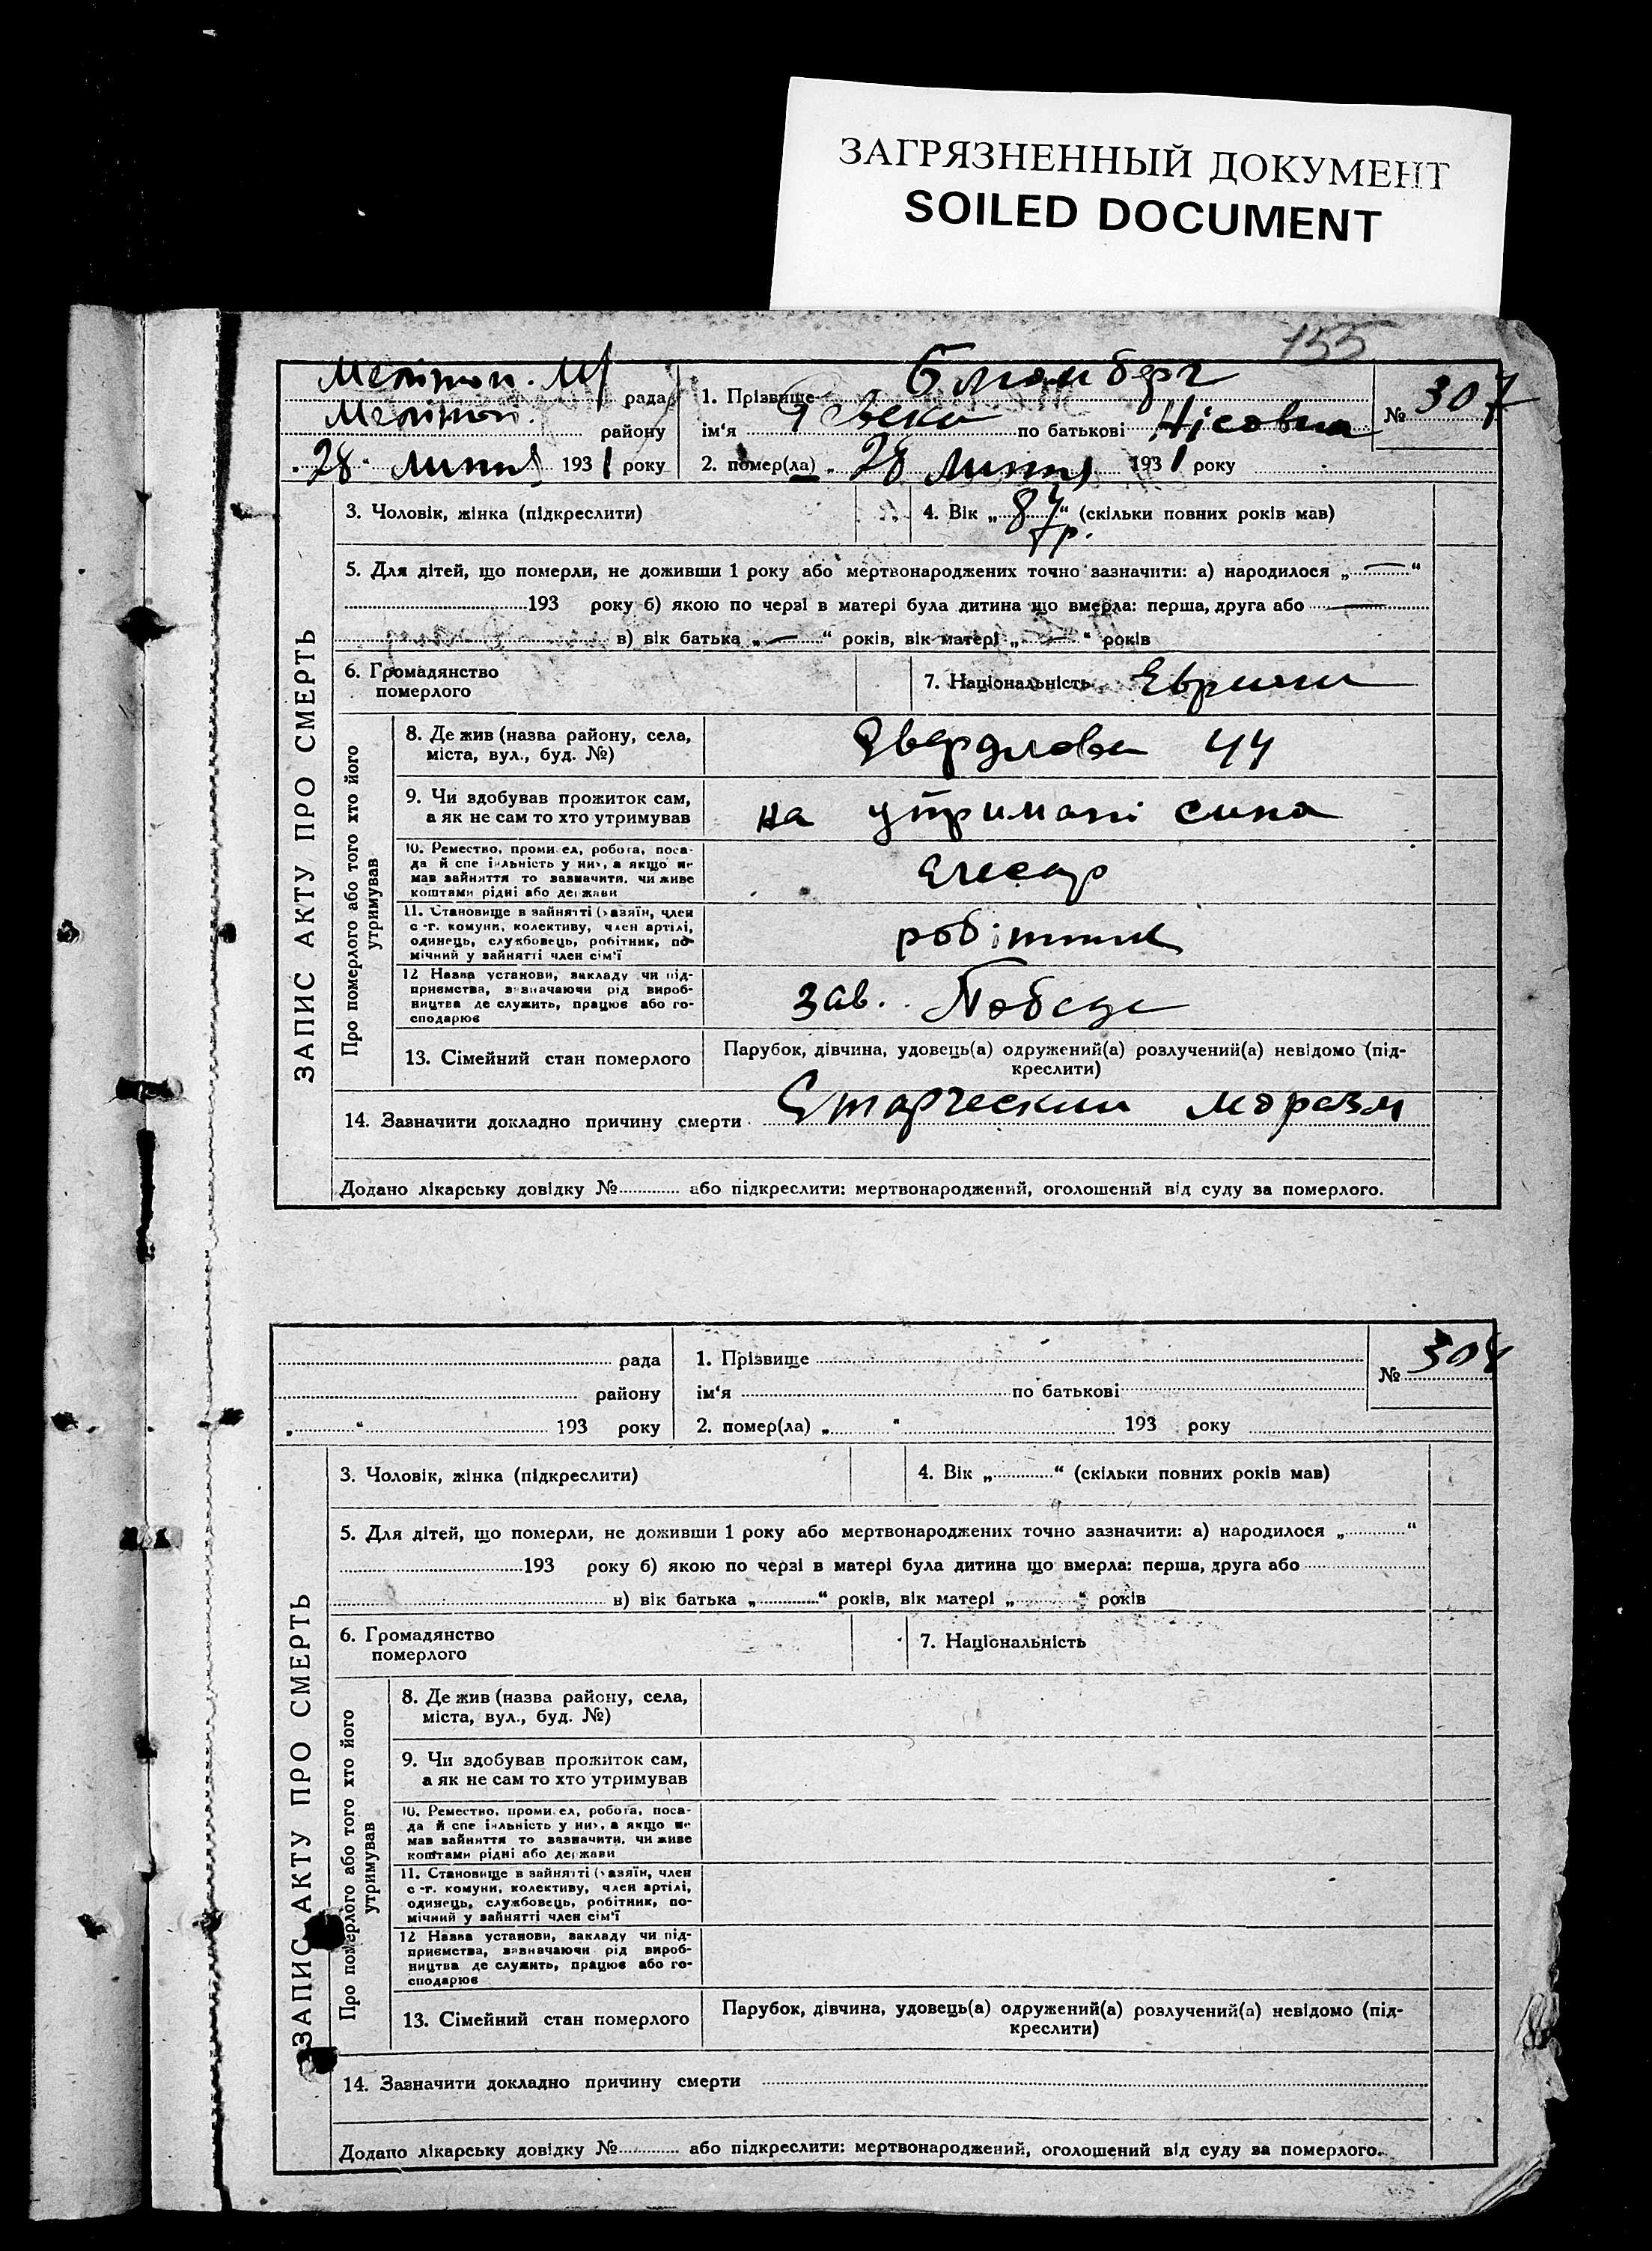 ЗАГРЯЗНЕННЫЙ ДОКУМЕНТ
SOILED DOCUMENT
155
ЗАПИС АКТУ ПРО СМЕРТЬ
Мелітоп. рада
Мелітоп. району
"28" липня 1931 року
1. Прізвище Блюмберг
ім‘я по батькові Нісовна
№ 307
2. помер(ла) „28 липня 1931 року
3. Чоловік, жінка (підкреслити)
4. Вік „87“ (скільки повних років мав)
р.
5. Для дітей, що померли, не доживши 1 року або мертвонароджених точно зазначити: а) народилося „—“
193 року б) якою по черзі в матері була дитина що вмерла: перша, друга або —
в) вік батька „—“ років, вік матері „—“ років
6. Громадянство
померлого
7. Національність Еврейка
Про померлого або того хто його
утримував
8. Де жив (назва району, села,
міста, вул., буд. №)
Свердлова 44
9. Чи здобував прожиток сам,
а як не сам то хто утримував
на утримані сина
10. Ремество, промисел, робота, поса-
да й спеціяльність у них, а якщо не
мав зайняття то зазначити, чи живе
коштами рідні або держави
Слесар
11. Становище в зайнятті (хазяїн, член
с.-г. комуни, колективу, член артілі,
одинець, службовець, робітник, по-
мічний у зайнятті член сім'ї
робітник
12 Назва установи, закладу чи під-
приємства, зазначаючи рід вироб-
ництва де служить, працює або го-
сподарює
зав. Победа
13. Сімейний стан померлого
Парубок, дівчина, удовець(а) одружений(а) розлучений(а) невідомо (під-
креслити)
14. Зазначити докладно причину смерти Старческий моразм
Додано лікарську довідку № або підкреслити: мертвонароджений, оголошений від суду за померлого.
ЗАПИС АКТУ ПРО СМЕРТЬ
рада
району
„ “ 193 року
1. Прізвище
ім‘я по батькові
№ 308
2. помер(ла) „ “ 193 року
3. Чоловік, жінка (підкреслити)
4. Вік „ “ (скільки повних років мав)
5. Для дітей, що померли, не доживши 1 року або мертвонароджених точно зазначити: а) народилося „ “
193 року б) якою по черзі в матері була дитина що вмерла: перша, друга або
в) вік батька „ “ років, вік матері „ “ років
6. Громадянство
померлого
7. Національність
Про померлого або того хто його
утримував
8. Де жив (назва району, села,
міста, вул., буд. №)
9. Чи здобував прожиток сам,
а як не сам то хто утримував
10. Ремество, промисел, робота, поса-
да й спеціяльність у них, а якщо не
мав зайняття то зазначити, чи живе
коштами рідні або держави
11. Становище в зайнятті (хазяїн, член
с.-г. комуни, колективу, член артілі,
одинець, службовець, робітник, по-
мічний у зайнятті член сім'ї
12 Назва установи, закладу чи під-
приємства, зазначаючи рід вироб-
ництва де служить, працює або го-
сподарює
13. Сімейний стан померлого
Парубок, дівчина, удовець(а) одружений(а) розлучений(а) невідомо (під-
креслити)
14. Зазначити докладно причину смерти
Додано лікарську довідку № або підкреслити: мертвонароджений, оголошений від суду за померлого.